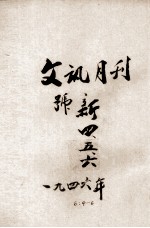 文訊月刊
新四五六
號
一九四六年
6:4-6